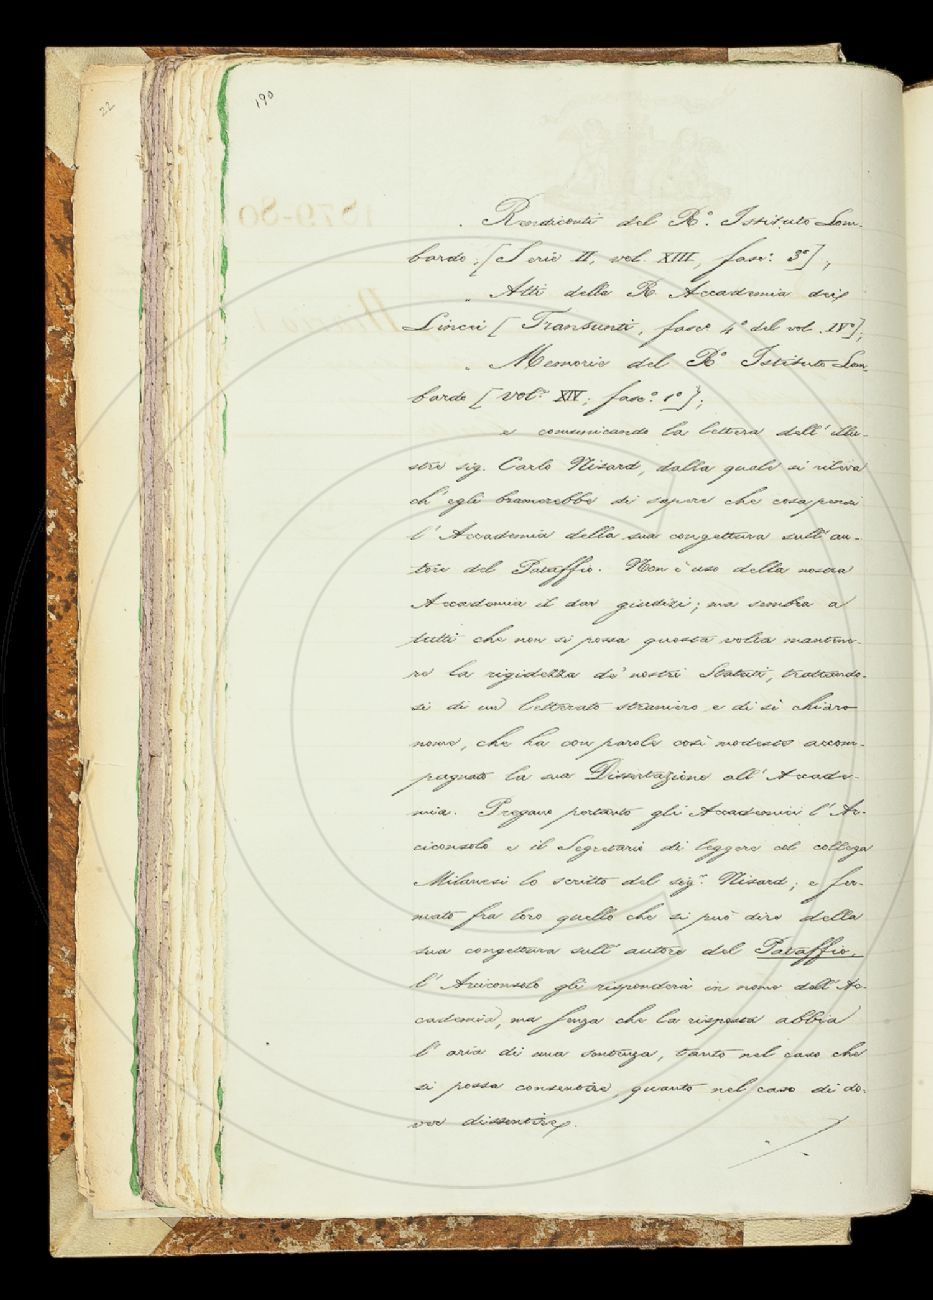 22
190
1879-80
„ Rendiconti del R.° Istituto Lom-
bardo; [Serie II, vol. XIII, fasc.° 3°];
„ Atti della R. Accademia dei
Lincei [Transunti, fasc.° 4° del vol. IV°];
„ Memorie del R.° Istituto Lom-
bardo [vol.e XIV; fasc.° 1°];
e comunicando la lettera dell'illu-
stre sig. Carlo Nisard, dalla quale si rileva
ch'egli bramerebbe di sapere che cosa pensi
l'Accademia della sua congettura sull'au-
tore del Pataffio. Non è uso della nostra
Accademia il dar giudizi; ma sembra a
tutti che non si possa questa volta mantene-
re la rigidezza de' nostri Statuti, trattando-
si di un letterato straniero e di sì chiaro
nome, che ha con parole così modeste accom-
pagnato la sua Dissertazione all'Accade-
mia. Pregano pertanto gli Accademici l'Ar-
ciconsolo e il Segretario di leggere col collega
Milanesi lo scritto del sig.r Nisard; e fer-
mato fra loro quello che si può dire della
sua congettura sull'autore del Pataffio,
l'Arciconsolo gli risponderà in nome dell'Ac-
cademia, ma senza che la risposta abbia
l'aria di una sentenza, tanto nel caso che
si possa consentire, quanto nel caso di do-
ver dissentire.